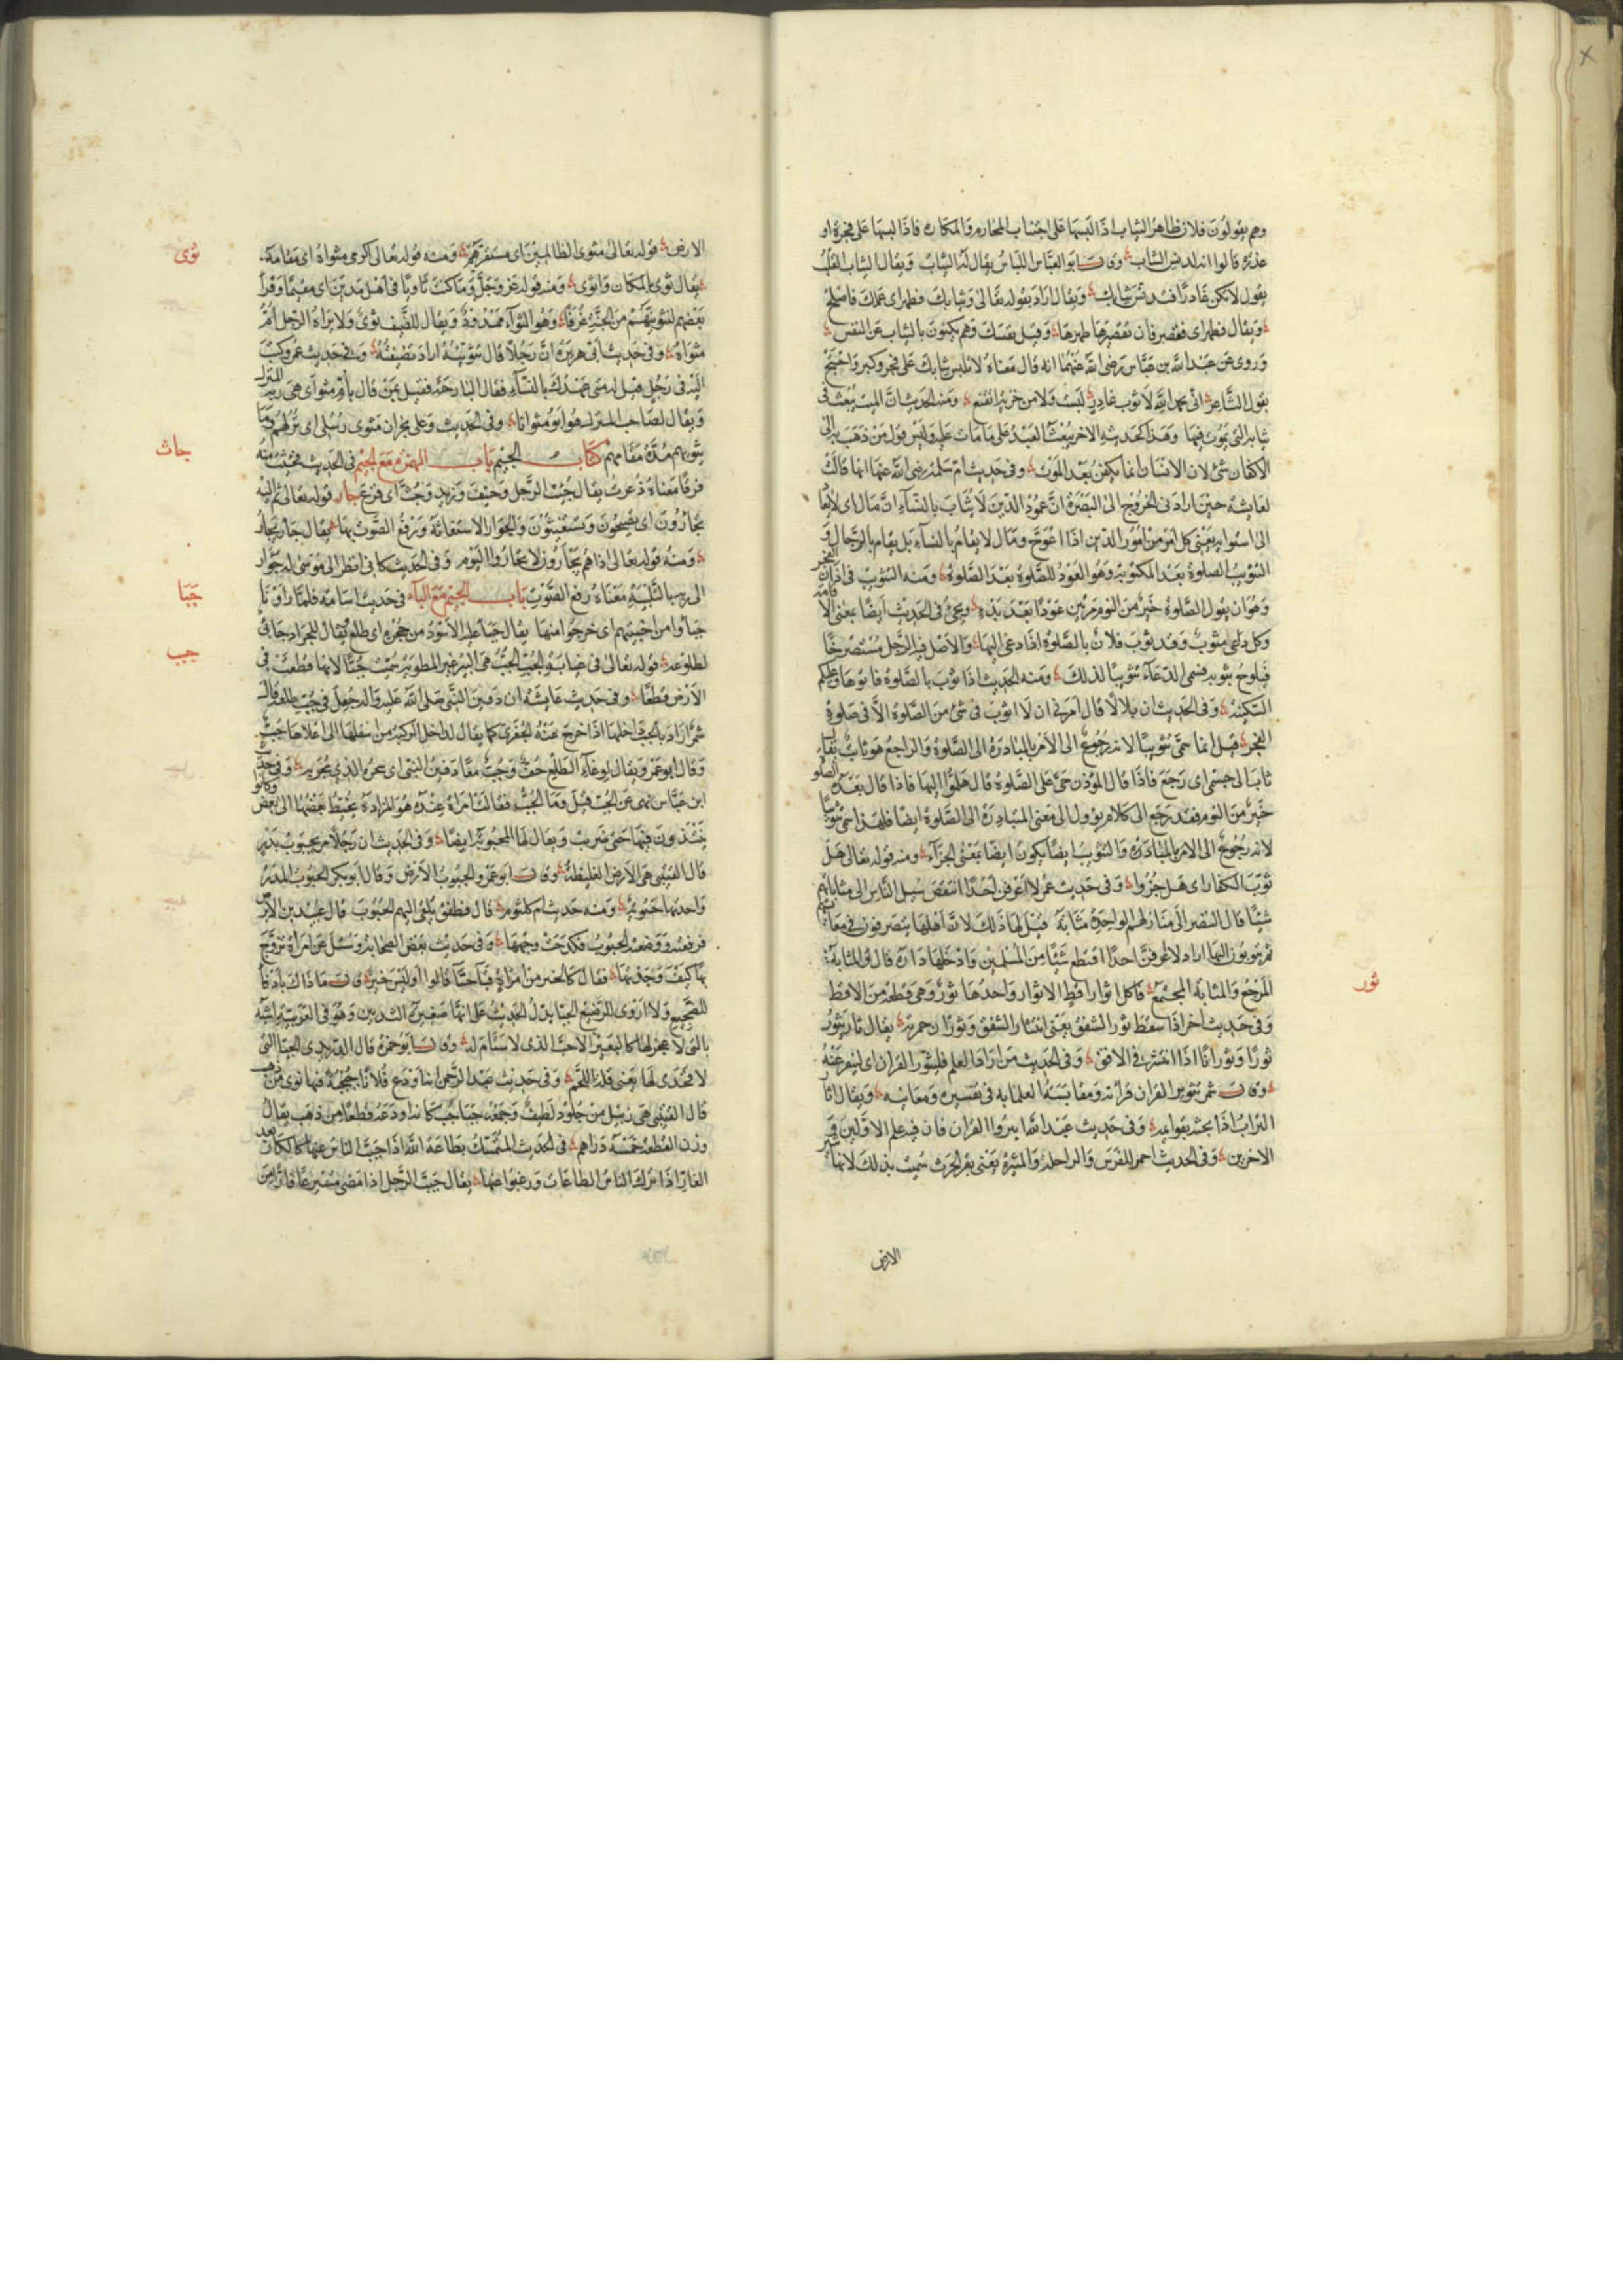 وهم يقولون فلان طاهر الثياب اذا لبسها على اجتناب المحارم والمكاره فاذا لبسها على فجرة او
غدرة قالوا انه لدنس الثياب وقال ابو العباس اللباس يقال له الثياب ويقال الثياب القلب
يقول لا تكن غادرا فتدنس ثيابك ويقال اراد بقوله تعالى وثيابك فطهر اى عملك فاصلح
ويقال فطهر اى فقصر فان تقصيرها طهرها وقيل نفسك وهم يكنون بالثياب عن النفس
وروى عن عبد الله بن عباس رضى الله عنهما انه قال معناه لا تلبس ثيابك على فجر وكبر واحتج
بقول الشاعر انى بحمد الله لا ثوب غادر لبست ولا من خزية اتقنع ومنه الحديث ان الميت يبعث فى
ثيابه التى يموت فيها وهذا كحديثه الاخر يبعث العبد على ما مات عليه وليس قول من ذهب به الى
الاكفان شئ لان الانسان انما يكفن بعد الموت وفى حديث ام سلمة رضى الله عنها انها قالت
لعايشة حين ارادت الخروج الى البصرة ان عمود الدين لا يثاب بالنساء ان مال اى لا يعاد
الى استوايه يعنى كل امر من امور الدين اذا اعوج ومال لا يقام بالنساء بل يقام بالرجال و
التثويب الصلوة بعد المكتوبة وهو العود للصلوة بعد الصلوة ومنه التثويب فى اذان الفجر
وهو ان يقول الصلوة خير من النوم مرتين عودا بعد بدء ويجئ فى الحديث ايضا بمعنى الاقامة
وكل داعى مثوب وقد ثوب فلان بالصلوة اذا دعى اليها والاصل فيه الرجل مستصرخا
فيلوح بثوبه فسمى الدعاء تثويبا لذلك ومنه الحديث اذا ثوب بالصلوة فاتوها وعليكم
السكينة وفى الحديث ان بلالا قال امرنى ان لا اثوب فى شئ من الصلوة الا فى صلوة
الفجر قيل انما سمى تثويبا لانه رجوع الى الامر بالمبادرة الى الصلوة والراجع هو ثايب يقال
ثاب الى جسمى اى رجع فاذا قال المؤذن حى على الصلوة قال هلموا اليها فاذا قال بعده الصلوة
خير من النوم فقد رجع الى كلام يؤول الى معنى المبادرة الى الصلوة ايضا فلهذا سمى تثويبا
لانه رجوع الى الامر بالمبادرة والتثويب ايضا يكون ايضا بمعنى الجزاء ومنه قوله تعالى هل
ثوب الكفار اى هل جزوا وفى حديث عمر لا اعرفن احدا انتقص سبل الناس الى مثاباتهم
شيئا قال النضر الى منازلهم الواحدة مثابة قيل لها ذلك لان اهلها يتصرفون فى معايشهم
ثم يثوبون اليها اراد لاعرفن احدا اقتطع شيئا من المسلمين وادخلها داره قال والمثابة
المرجع والمثابة المجتمع فاكل اثوار اقط الاثوار واحدها ثور وهى قطعة من الاقط
وفى حديث اخر اذا سقط ثور الشفق يعنى انتشار الشفق وثوران حمرته يقال ثار يثور
ثورا وثورانا اذا انتشر فى الافق وفى الحديث من اراد العلم فليثور القران اى لينقر عنه
وقال شمر تثوير القران قراءته ومفاتشة العلماء به فى تفسيره ومعانيه ويقال اثار
التراب اذا بحثه بقوايمه وفى حديث عبد الله اثيروا القران فان فيه علم الاولين و
الاخرين وفى الحديث احمر للفرس والراحلة والمثيرة يعنى بقر الحرث سميت بذلك لانها تثير
ثور
الارض
الارض قوله تعالى مثوى الظالمين اى مستقرهم ومنه قوله تعالى اكرمى مثواه اى مقامه
يقال ثوى بالمكان واثوى ومنه قوله عز وجل وما كنت ثاويا فى اهل مدين اى مقيما وقرأ
بعضهم لنثوينهم من الجنة غرفا وهو الثواء ممدودة ويقال للضيف ثوى ولامراة الرجل ام
مثواه وفى حديث ابى هريرة ان رجلا قال تثويته اراد تضيفته وفى حديث عمر وكتب
اليه فى رجل قيل له متى عهدك بالنساء فقال البارحة فقيل بمن قال بام مثواى هى ربة المنزل
ويقال لصاحب المنزل هو ابو مثوانا وفى الحديث وعلى نجران مثوى رسلى اى نزلهم وما
يثويهم مدة مقامهم كتاب الجيم باب الهمزة مع الجيم فى الحديث فجثثت منه
فرقا معناه ذعرت يقال جئث الرجل وجئف وزيد وجث اى فزع جأر قوله تعالى ثم اليه
تجأرون اى تضيحون وتستغيثون والجوار الاستغاثة ورفع الصوت بها يقال جأر يجأر
ومنه قوله تعالى اذا هم يجأرون لا تجأروا اليوم وفى الحديث كانى انظر الى موسى له جوار
الى ربه بالتلبية معناه رفع الصوت باب الجيم مع الباء فى حديث اسامة فلما راونا
جبأوا من اخبيتهم اى خرجوا منها يقال جبأ عليه الاسود من جحره اى طلع ويقال للجراد جابى
لطلوعه قوله تعالى فى غيابة الجب الجب هى البئر غير المطوية سميت جبا لانها قطعت فى
الارض قطعا وفى حديث عايشة ان دفين النبى صلى الله عليه واله جعل فى جب طلعة قال
شمر اراد بالجب داخلها اذا خرج عنه الجفرى كما يقال لداخل الركية من اسفلها الى اعلاها جب
ابن عباس نهى عن الجب قيل وما الجب فقالت امراة عنده هو المزادة يخيط بعضها الى بعض وكانوا
ينتبذون فيها حتى ضريت ويقال لها المجبوبة ايضا وفى الحديث ان رجلا مر بجبوب بدر
قال القتيبى هى الارض الغليظة وقال ابو عمرو الجبوب الارض وقال ابو بكر الجبوب المدر
واحدتها جبوبة ومنه حديث ام كلثوم قال فطفق يلقى اليهم الجبوب قال عبيد بن الابرص
فرفعته ووضعته الجبوب فكدحت وجهها وفى حديث بعض الصحابة وسئل عن امراة تزوج
بها كيف وجدتها فقال كالخير من امراة قباء جباء قالوا اوليس خيرا قال ما ذاك بادفأ
للضجيع ولا اروى للرضيع
لا فخذى لها يعنى قلة اللحم وفى حديث عبد الرحمن انه اودع فلانا جبجبة فيها نوى من ذهب
قال القتيبى هى زبيل من جلود لطيف وجمعه جباجب كانه اودعه قطعا من ذهب يقال
وزن القطعة خمسة دراهم فى الحديث المتمسك بطاعة الله اذا جبب الناس عنها كالكار بعد
الفار اذا ترك الناس الطاعات ورغبوا عنها يقال جبب الرجل اذا مضى مسرعا فارا من
ثوى
جاث
جبا
جبب